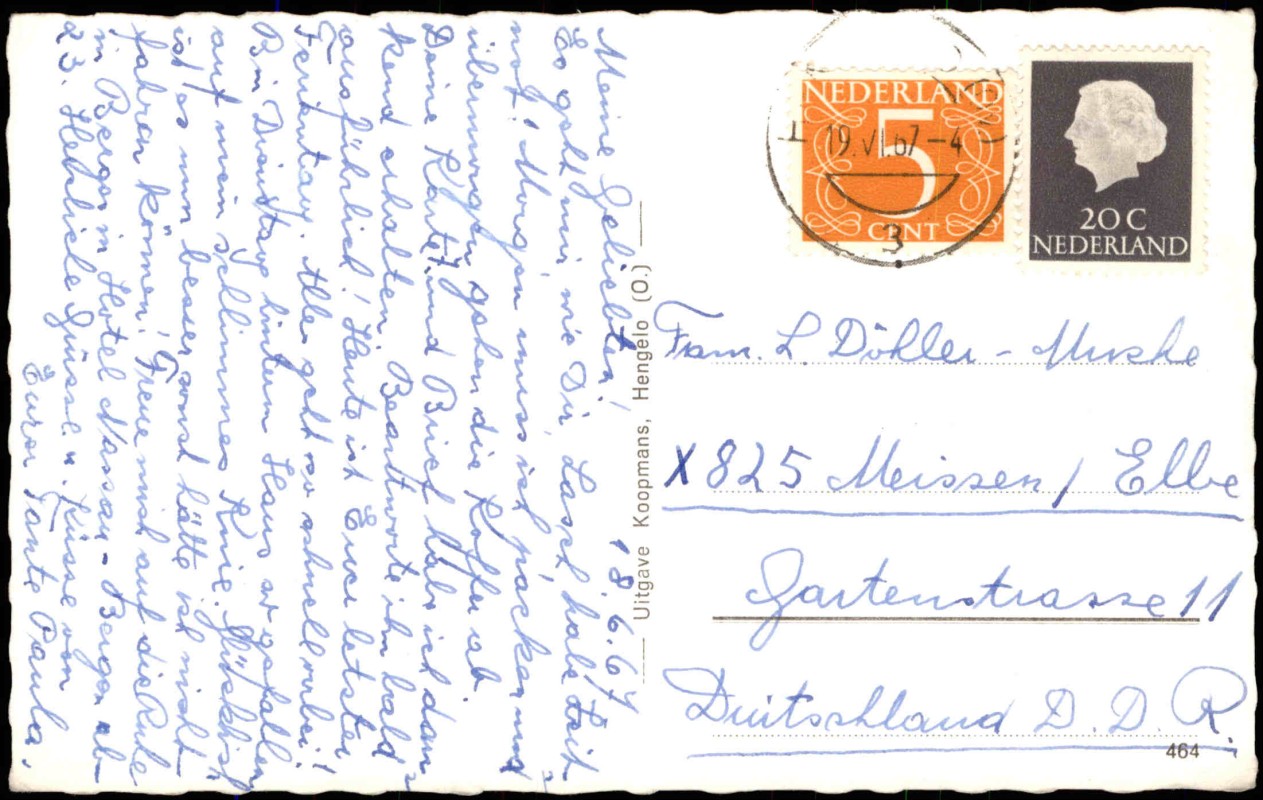 18.6.67
Meine Geliebten!
Es geht mir, wie Dir, Lasch habe Zeit-
not! Morgen muss ich packen und
übermorgen gehen die Koffer ab.
Deine Karte und Brief hab ich dan-
kend erhalten. Beantworte ihn bald
ausführlich! Heute ist Euer letzter
Ferientag. Alles geht so schnell vorbei!
Bin Dienstag hinterm Haus so gefallen
auf mein schlimmes Knie. Glücklich
ist es nun besser, sonst hätte ich nicht
fahren können! Freue mich auf die Ruhe
in Bergen in Hotel Nassau-Bergen ab
23. Herzliche Grüsse u. Küsse von
Eurer Tante Paula.
Uitgave Koopmans, Hengelo (O.)
NEDERLAND
5
CENT
19.VI.67-4
3
20 C
NEDERLAND
Fam. L. Döhler - Mushe
X 825 Meissen / Elbe
Gartenstrasse 11
Duitschland D. D. R.
464